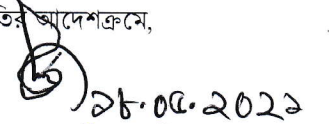 তির আদেশক্রমে,
১৮.০৫.২০২১